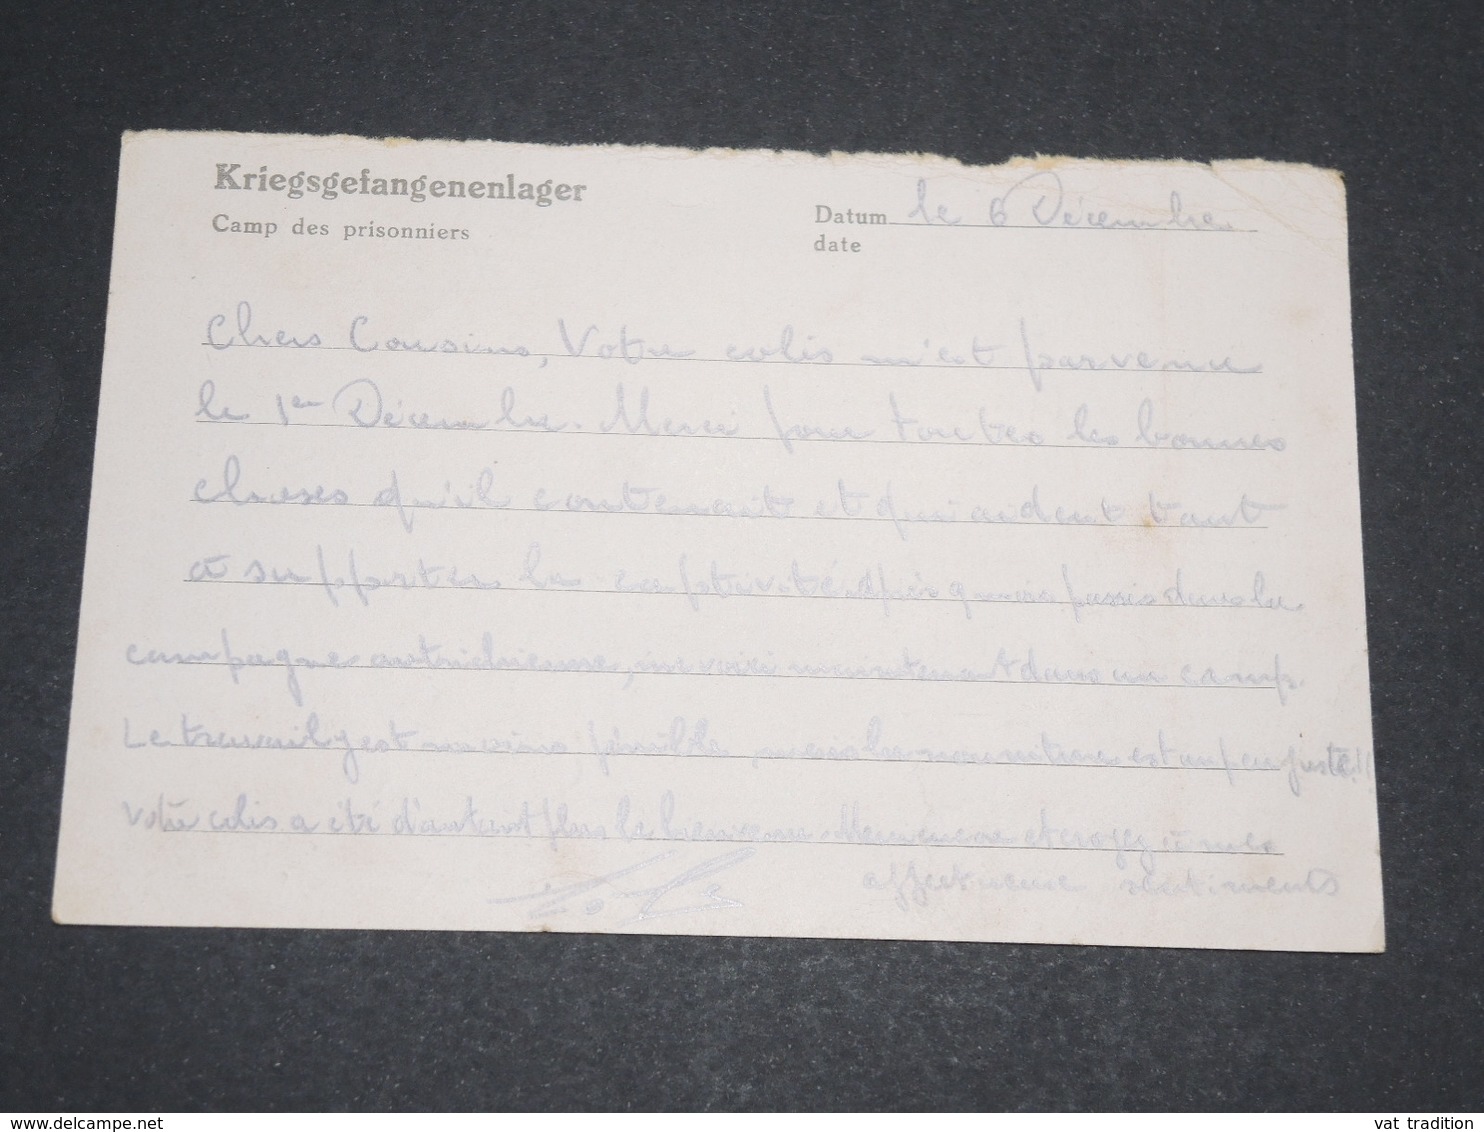 Kriegsgefangenenlager
Camp des prisonniers
Datum le 6 Décembre
date
Chers Cousins, Votre colis m'est parvenu
le 1er Décembre. Merci pour toutes les bonnes
choses qu'il contenait et qui aident tant
à supporter la captivité. Après 9 mois passés dans la
campagne autrichienne, me voici maintenant dans un camp.
Le travail y est moins pénible, mais la nourriture est un peu juste!!
Votre colis a été d'autant plus le bienvenu. Merci encore et croyez à mes
affectueux sentiments
delcampe.net
vat tradition